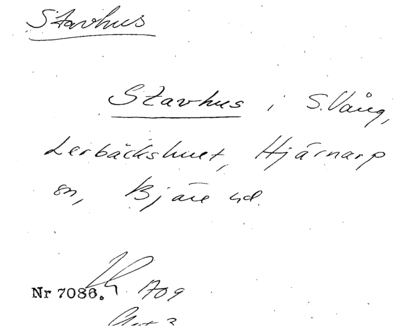 Stavhus
Stavhus i S. Vång,
Lerbäckshult, Hjärnarp
sn, Bjäre hd.
Nr 7086. 1709